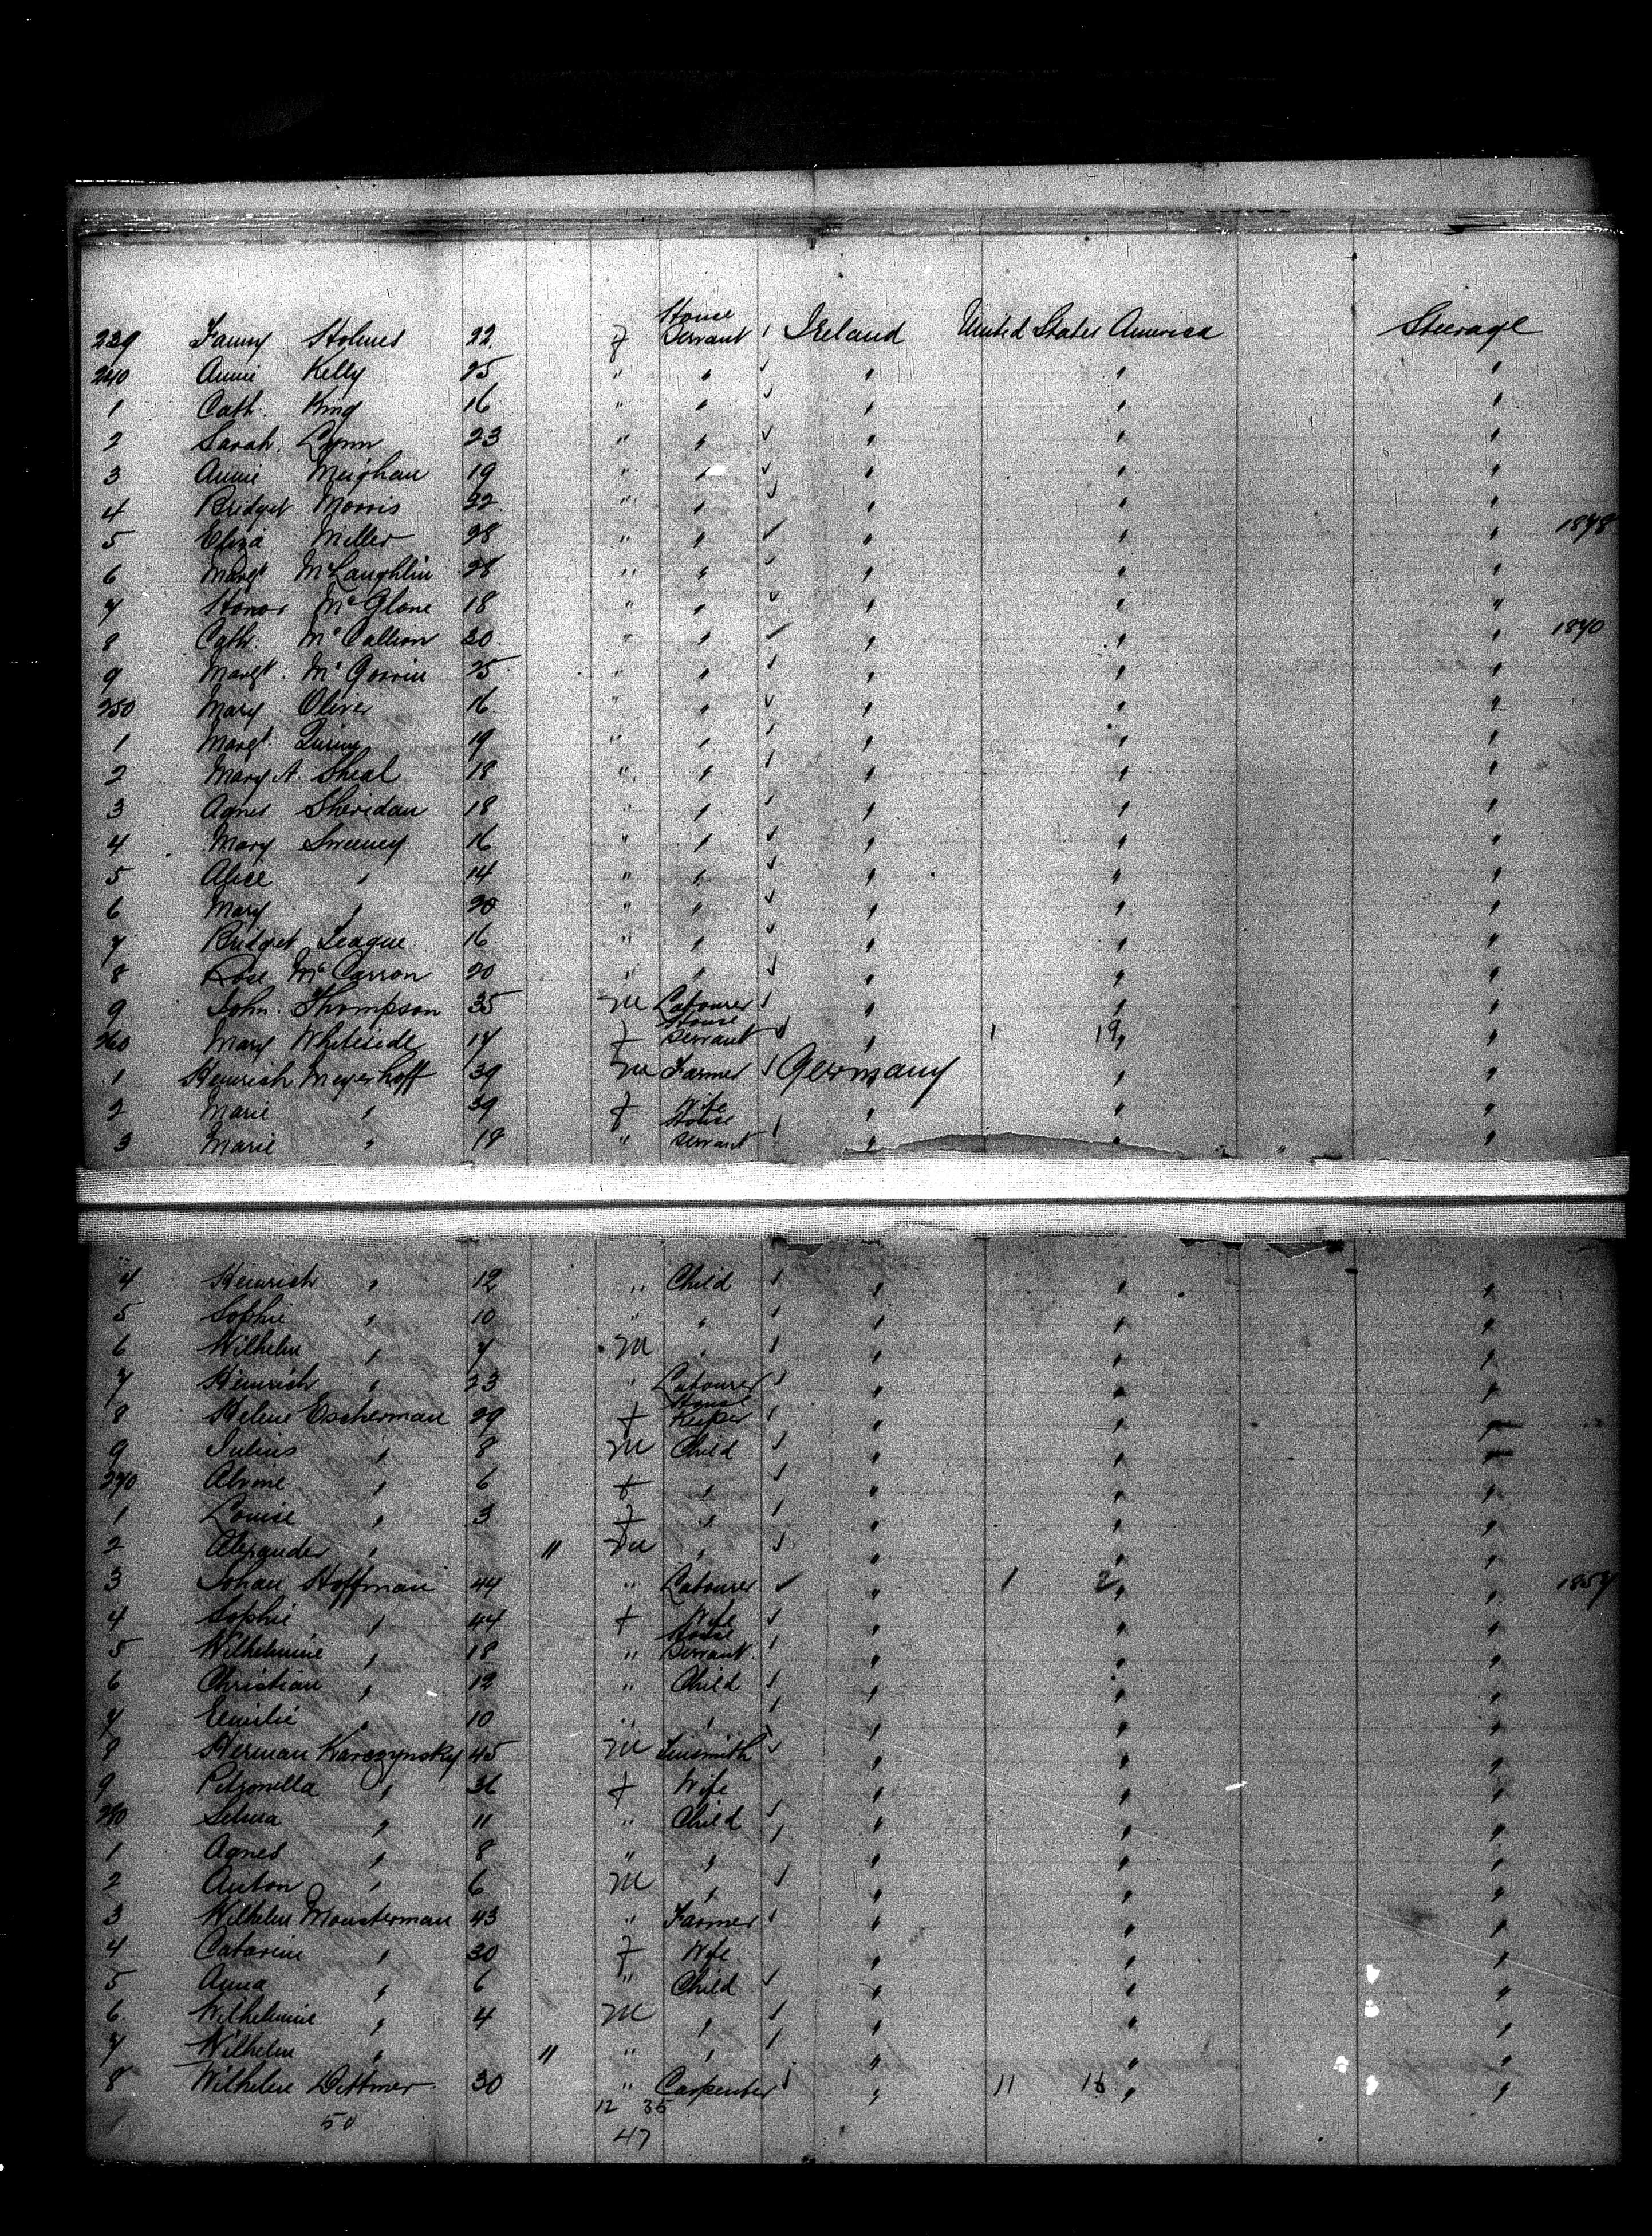 239 Fanny Holmes 22 f House Servant Ireland United States America Steerage
240 Annie Kelly 25 " " " " "
1 Cath. King 16 " " " " "
2 Sarah Lynn 23 " " " " "
3 Annie Meighan 19 " " " " "
4 Bridget Morris 22 " " " " "
5 Eliza Miller 28 " " " " " 1878
6 Margt McLaughlin 28 " " " " "
7 Honor McGlone 18 " " " " "
8 Cath. McCallion 30 " " " " " 1870
9 Margt. McGorrin 25 " " " " "
250 Mary Oliver 16 " " " " "
1 Margt. Quinn 19 " " " " "
2 Mary A. Sheal 18 " " " " "
3 Agnes Sheridan 18 " " " " "
4 Mary Sweeney 16 " " " " "
5 Alice " 14 " " " " "
6 Mary " 20 " " " " "
7 Bridget League 16 " " " " "
8 Rose McCarron 20 " " " " "
9 John Thompson 35 M Labourer " " "
260 Mary Whiteside 17 f House Servant " 1 19 " "
1 Heinrich Meyerhoff 39 M Farmer Germany " "
2 Marie " 39 f Wife " " "
3 Marie " 17 " House Servant " " "
4 Heinrich " 12 " Child " " "
5 Sophie " 10 " " " " "
6 Wilhelm " 7 M " " " "
7 Heinrich " 23 " Labourer " " "
8 Helene Escherman 29 f House Keeper " " "
9 Julius " 8 M Child " " "
270 Alvine " 6 f " " " "
1 Louise " 3 f " " " "
2 Alexander " 11 M " " " "
3 Johan Hoffman 44 " Labourer " 1 2 " " 1857
4 Sophie " 44 f Wife " " "
5 Wilhelmine " 18 " House Servant " " "
6 Christian " 12 " Child " " "
7 Emilie " 10 " " " " "
8 Herman Karczynsky 45 M Tinsmith " " "
9 Petronella " 36 f Wife " " "
280 " 11 " Child " " "
1 Agnes " 8 " " " " "
2 Anton " 6 M " " " "
3 Wilhelm Mousterman 43 " Farmer " " "
4 Catarine " 30 f Wife " " "
5 Anna " 6 " Child " " "
6 Wilhelmine " 4 M " " " "
7 Wilhelm " 11 " " " " "
8 Wilhelm Dittmer 30 " Carpenter " 11 18 " "
50 12 35
47